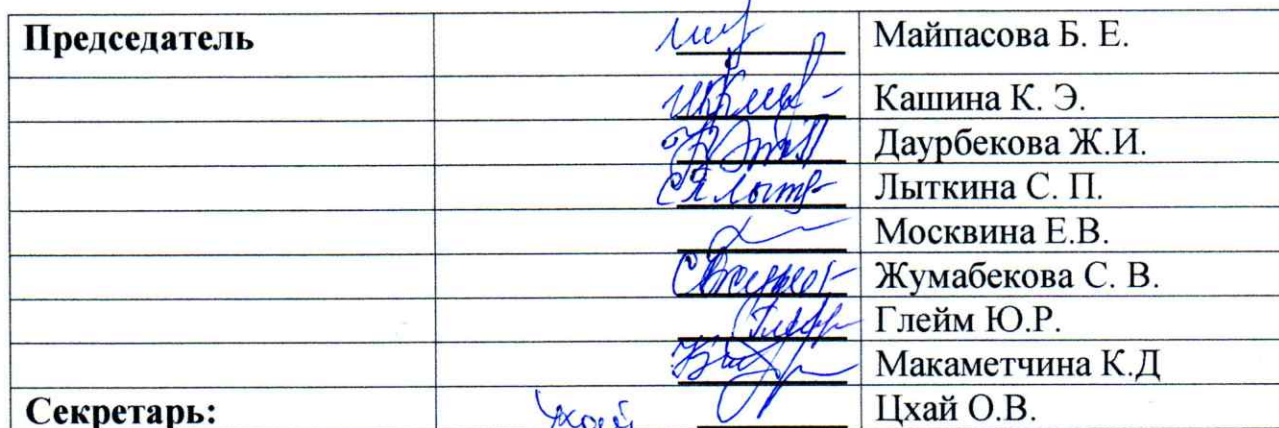 Председатель Майпасова Б. Е.
Кашина К. Э.
Даурбекова Ж.И.
Лыткина С. П.
Москвина Е.В.
Жумабекова С. В.
Глейм Ю.Р.
Макаметчина К.Д
Секретарь: Цхай О.В.